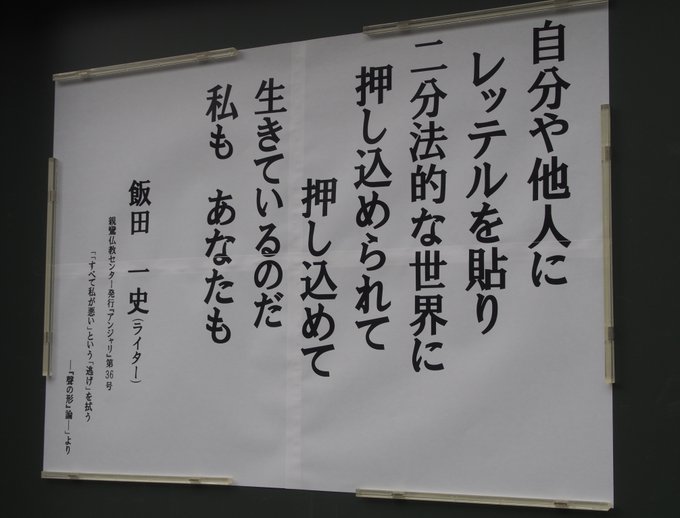 自分や他人に
レッテルを貼り
二分法的な世界に
押し込められて
押し込めて
生きているのだ
私も あなたも
飯田 一史(ライター)
親鸞仏教センター発行『アンジャリ』第36号
「「すべて私が悪い」という「逃げ」を拭う
―『聲の形』論―」より